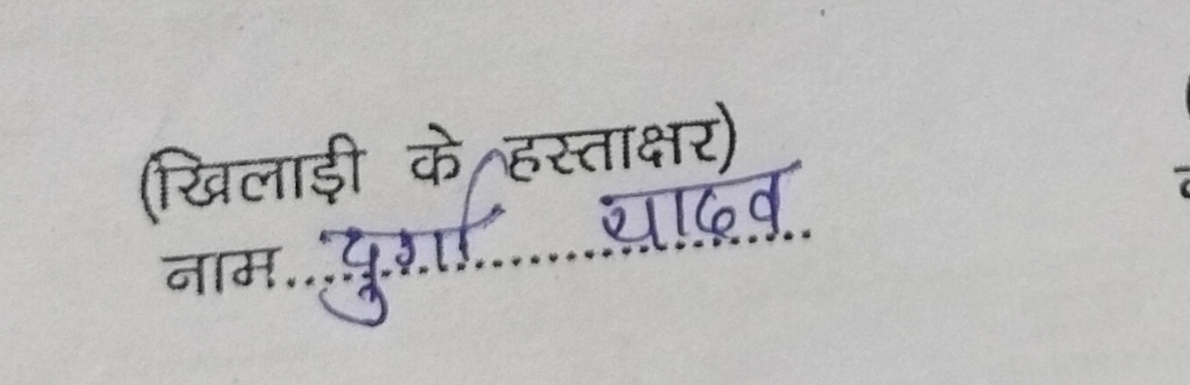 (खिलाड़ी के हस्ताक्षर)
नाम....दुर्गा..........यादव..